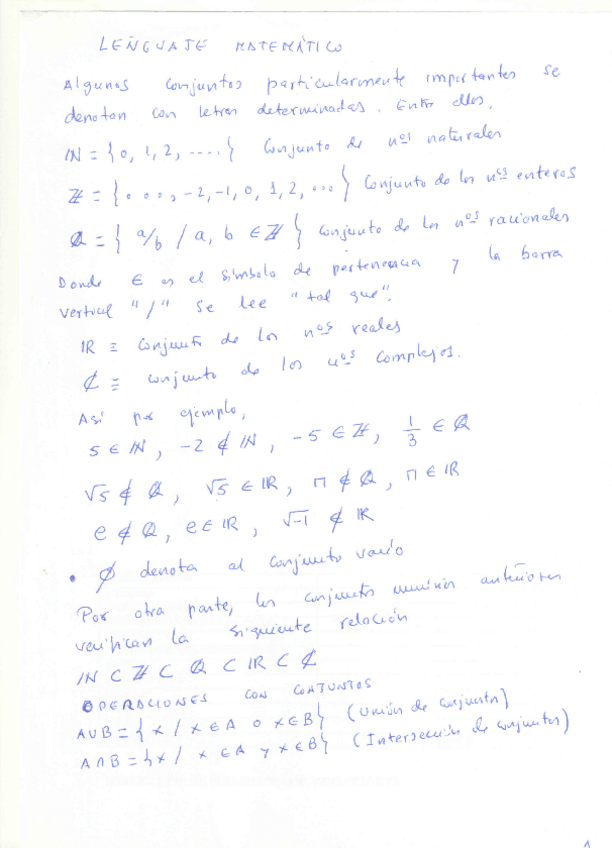 LENGUAJE MATEMÁTICO
Algunos conjuntos particularmente importantes se
denotan con letras determinadas. Entre ellos,
ℕ = {0, 1, 2, ....} Conjunto de nºs naturales
ℤ = {..., -2, -1, 0, 1, 2, ...} Conjunto de los nºs enteros
ℚ = { a/b / a, b ∈ ℤ } Conjunto de los nºs racionales
Donde ∈ es el símbolo de pertenencia y la barra
vertical "/" se lee "tal que".
ℝ ≡ Conjunto de los nºs reales
ℂ ≡ conjunto de los nºs complejos.
Así por ejemplo,
5 ∈ ℕ, -2 ∉ ℕ, -5 ∈ ℤ, 1/3 ∈ ℚ
√5 ∉ ℚ, √5 ∈ ℝ, π ∉ ℚ, π ∈ ℝ
e ∉ ℚ, e ∈ ℝ, √-1 ∉ ℝ
• ∅ denota al conjunto vacío
Por otra parte, los conjuntos numéricos anteriores
verifican la siguiente relación
ℕ ⊂ ℤ ⊂ ℚ ⊂ ℝ ⊂ ℂ
OPERACIONES CON CONJUNTOS
A∪B = {x / x ∈ A o x ∈ B} (Unión de conjuntos)
A∩B = {x / x ∈ A y x ∈ B} (Intersección de conjuntos)
1